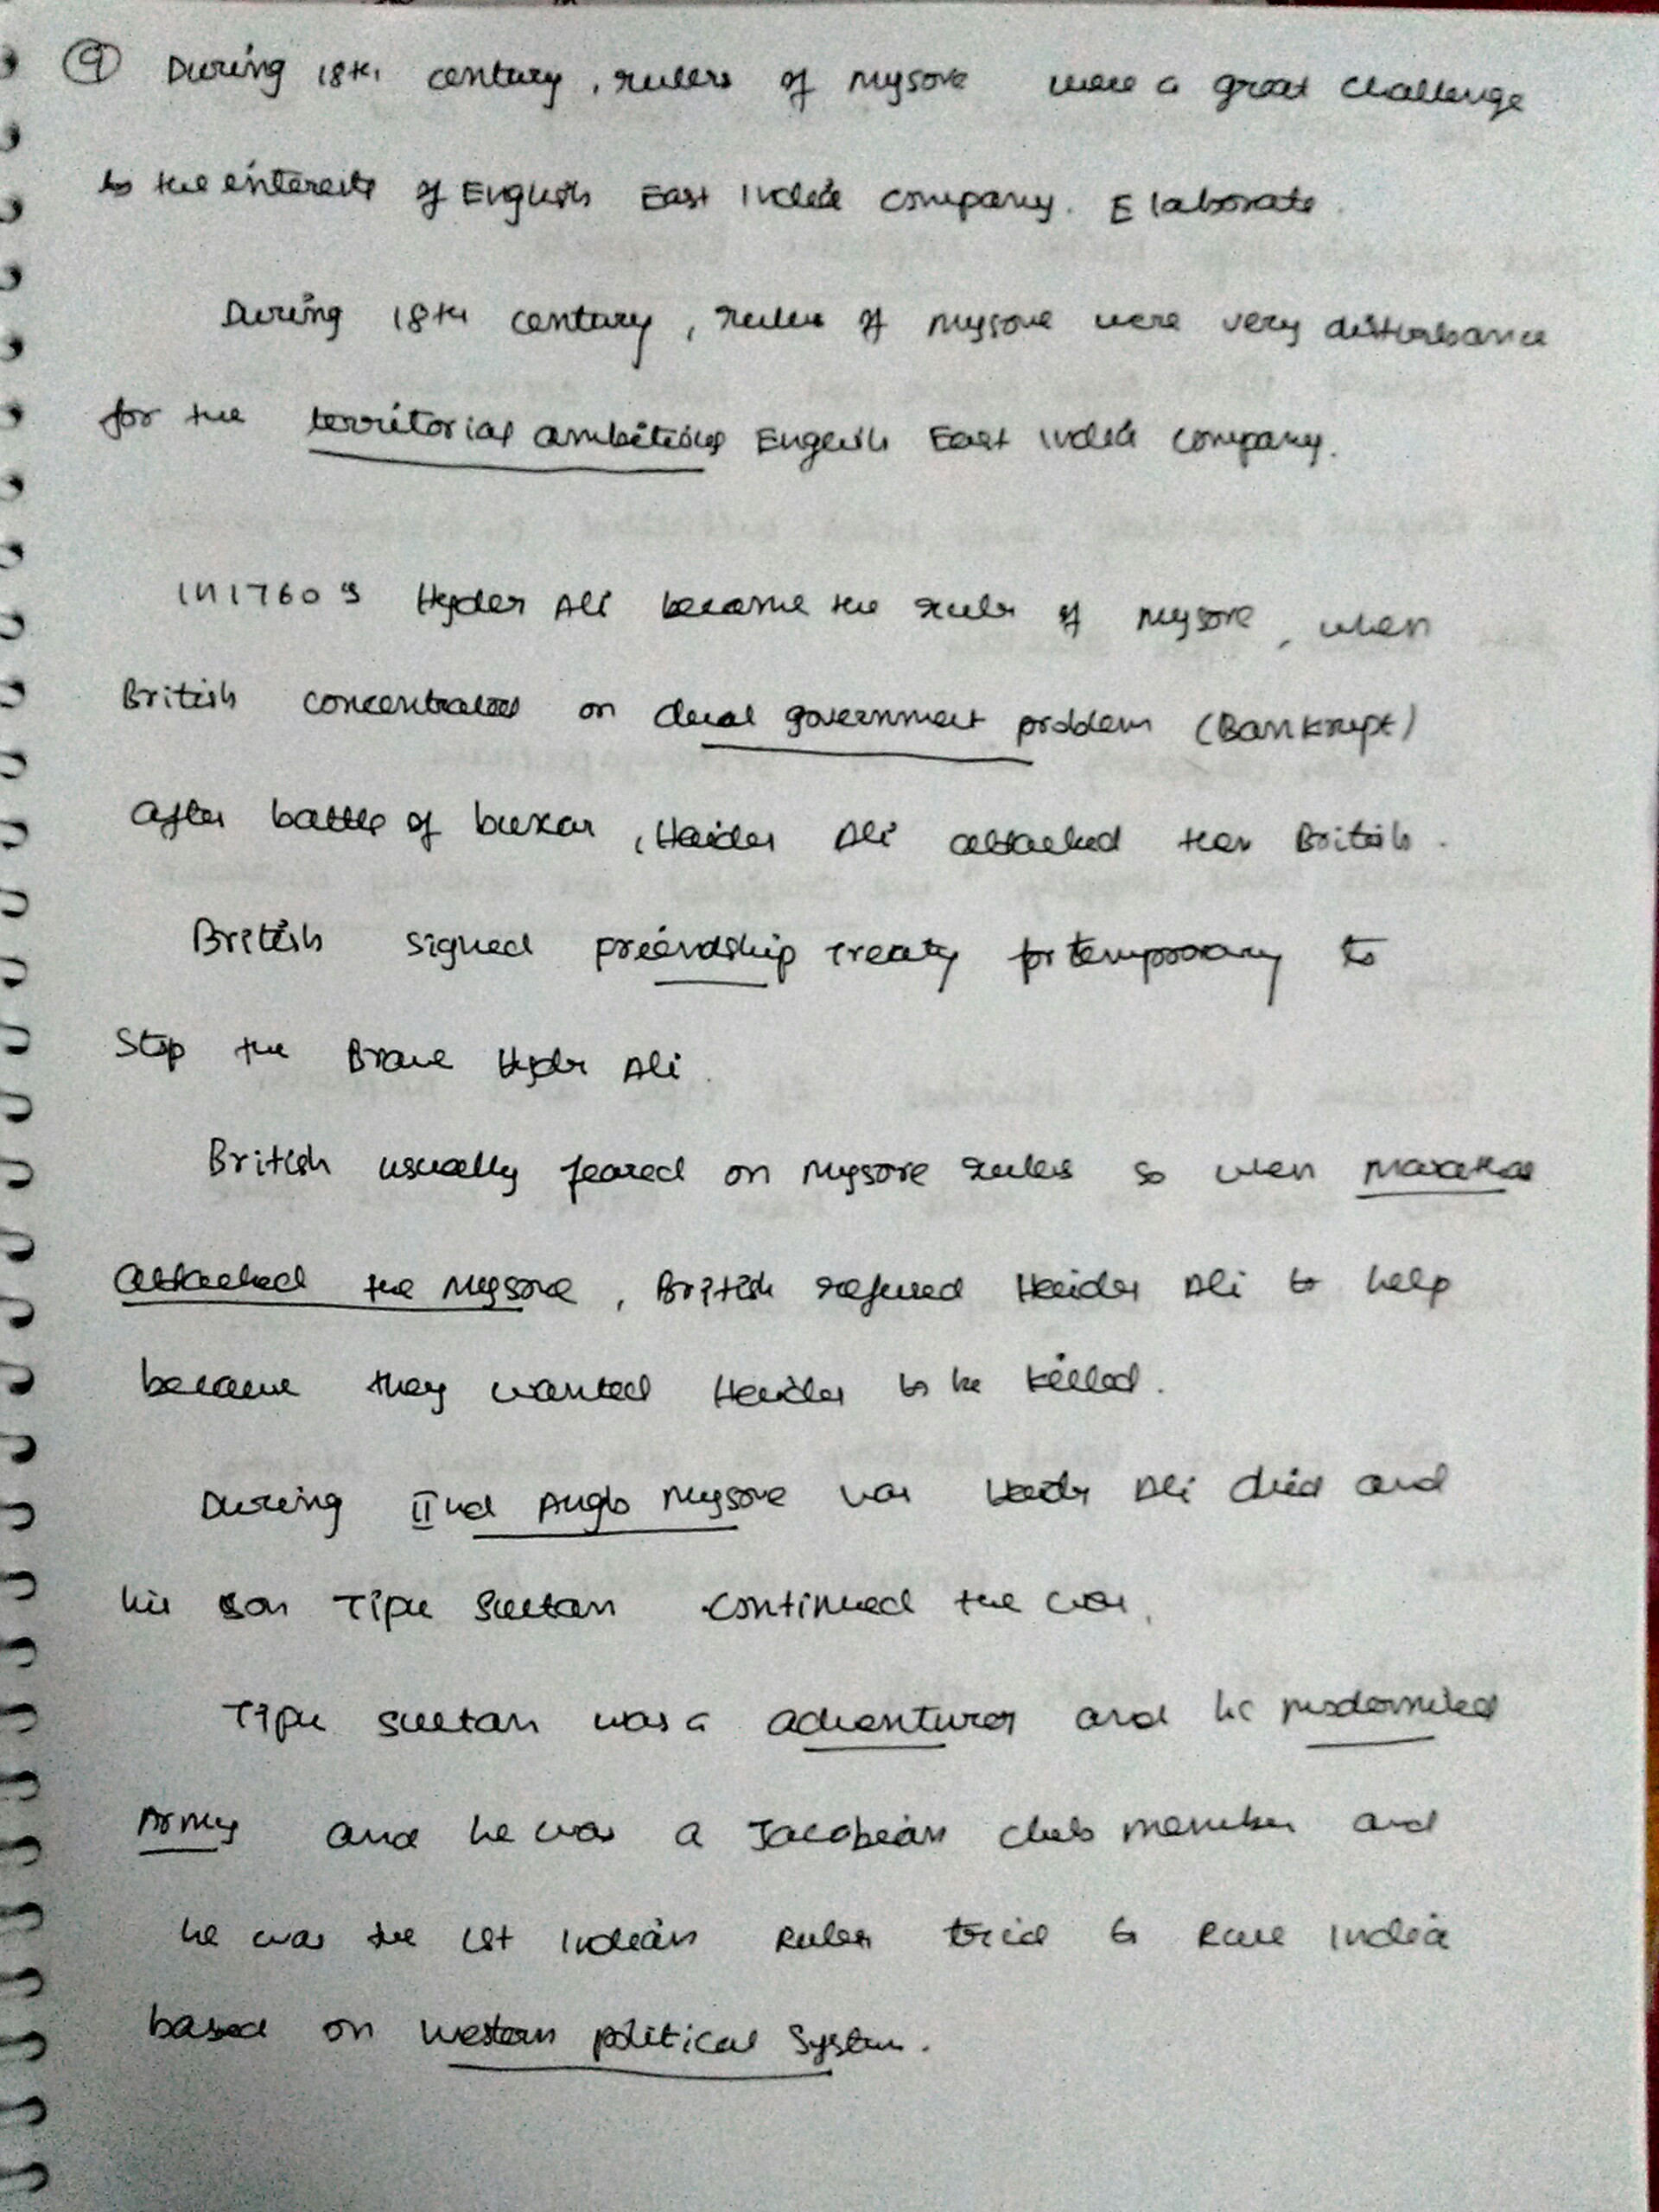 9 During 18th century, rulers of Mysore were a great challenge
to the interests of English East India company. Elaborate.
During 18th century, rulers of Mysore were very disturbance
for the territorial ambitions English East India company.
In 1760's Hyder Ali became the ruler of Mysore, when
British concentrated on dual government problem (Bankrupt)
after battle of buxar, Haider Ali attacked the British.
British signed friendship treaty for temporary to
Stop the Brave Hydr Ali.
British usually feared on Mysore rulers so when Marathas
attacked the Mysore, British refused Haider Ali to help
because they wanted Haider to be killed.
During IInd Anglo Mysore war Haidr Ali died and
his son Tipu Sultan continued the war.
Tipu sultan was a adventurer and he modernised
Army and he was a Jacobean club member and
he was the 1st Indian Ruler tried to Rule India
based on western political System.